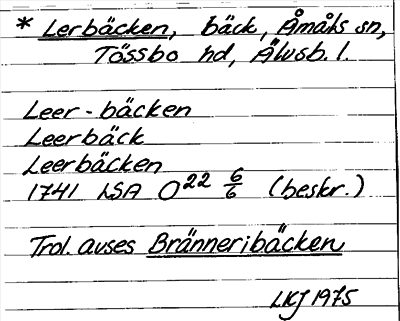 * Lerbäcken, bäck, Åmåls sn,
Tössbo hd, Älvsb. l.
Leer-bäcken
Leerbäck
Leerbäcken
1741 LSA O22 6/6 (beskr.)
Trol. avses Bränneribäcken
LKJ 1975